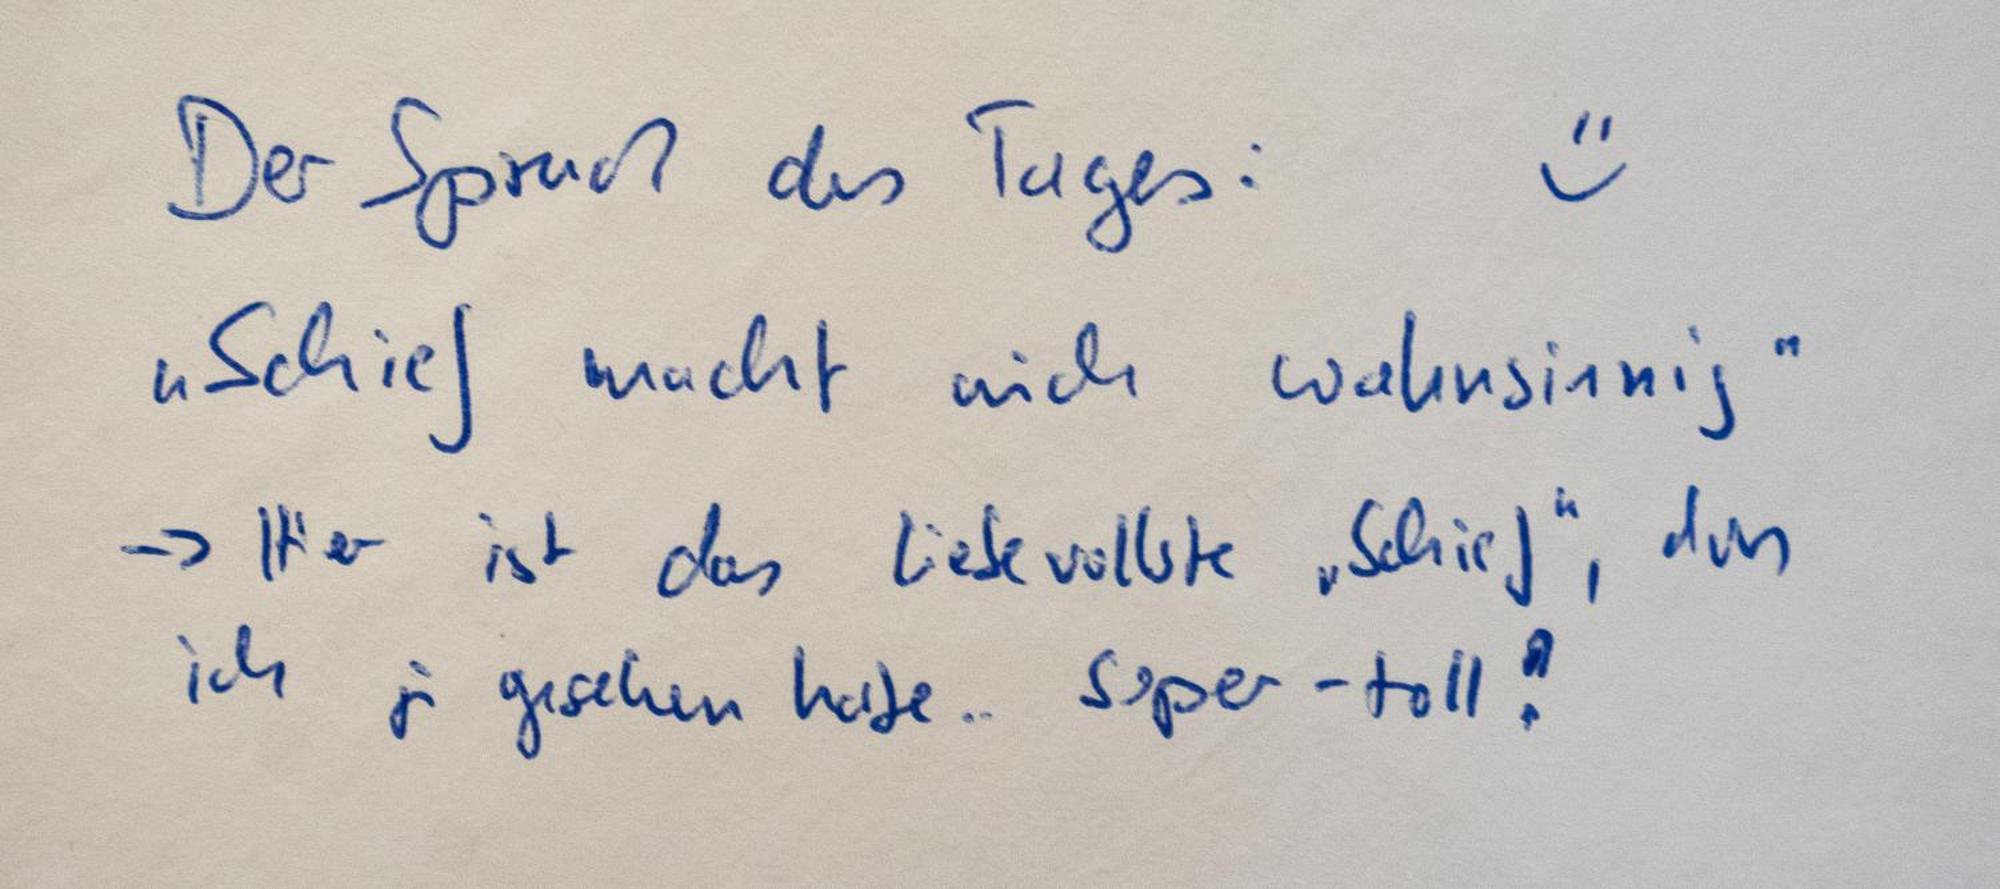 Der Spruch des Tages: 
"Schief macht mich wahnsinnig"
-> Hier ist das liebevollste "Schief", das
ich je gesehen habe.. super-toll!